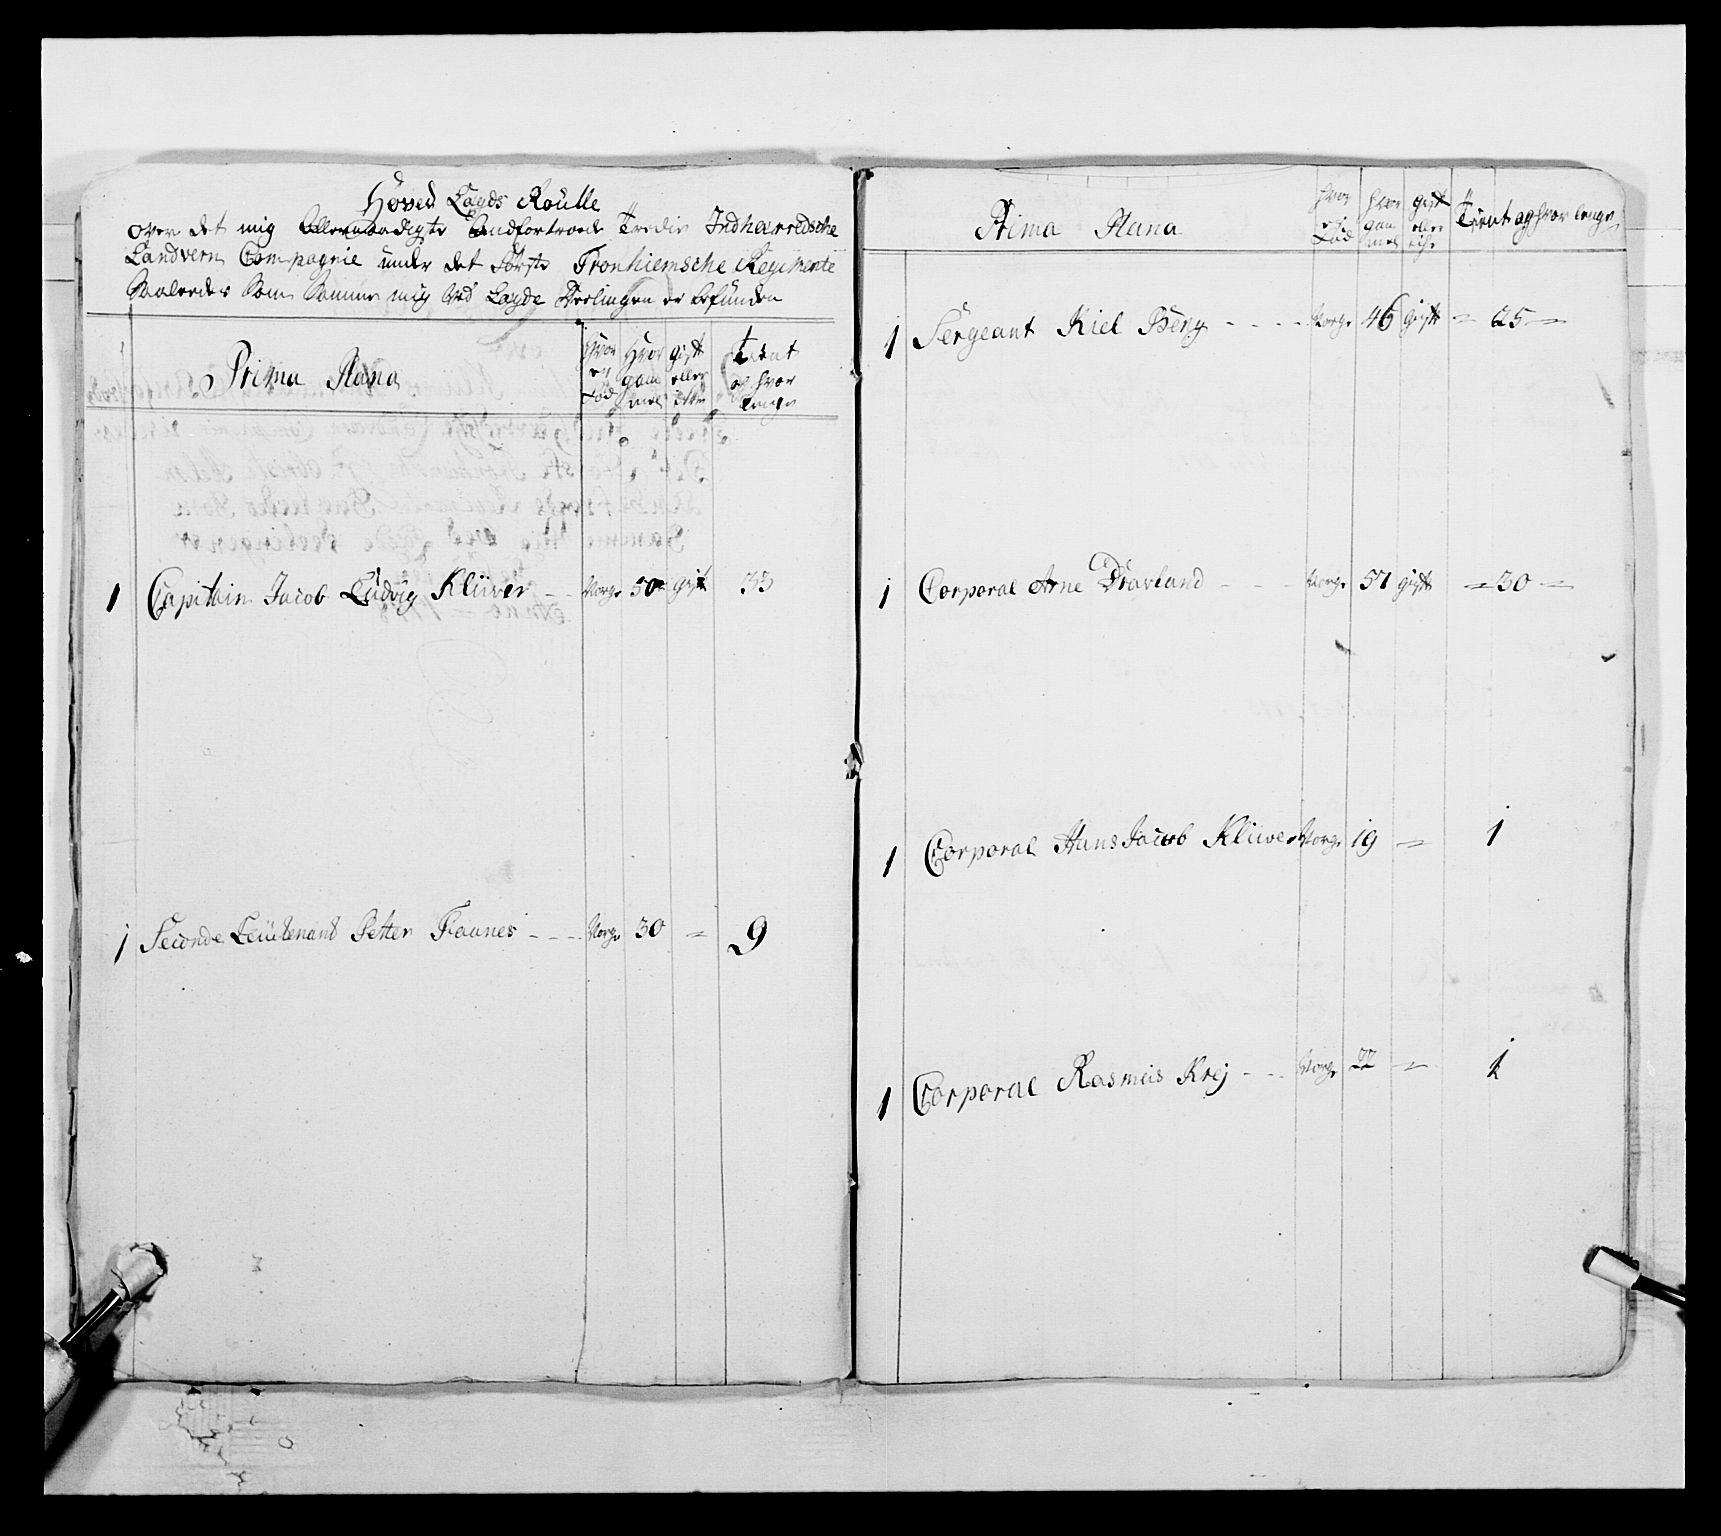 Hoved Lægds Roulle
over det mig Allernaadigste Anfortroede Tredie Indherredsche
Landvern Compagnie under det Første Tronhiemsche Regimente
Saaledes Som Samme mig ved Lægde Deelingen er befunden
Prima Plana
hvor er Fød
hvor gammel
gift eller ikke
tient og hvor lenge
1 Capitain Jacob Ludvig Klüver -- Norge 50 gift 33
1 Seconde Leutenant Petter Faanes --- Norge 30 = 9
Prima Plana
hvor er Fød
hvor gammel
gift eller ikke
Tient og hvor lenge
1 Sergeant Kiel Berg ---- Norge 46 gift = 25 =
1 Corporal Arne Dravland ---- Norge 57 gift = 30 =
1 Corporal Hans Jacob Klüver Norge 19 = 1
1 Corporal Rasmus Krej --- Norge 22 = 1